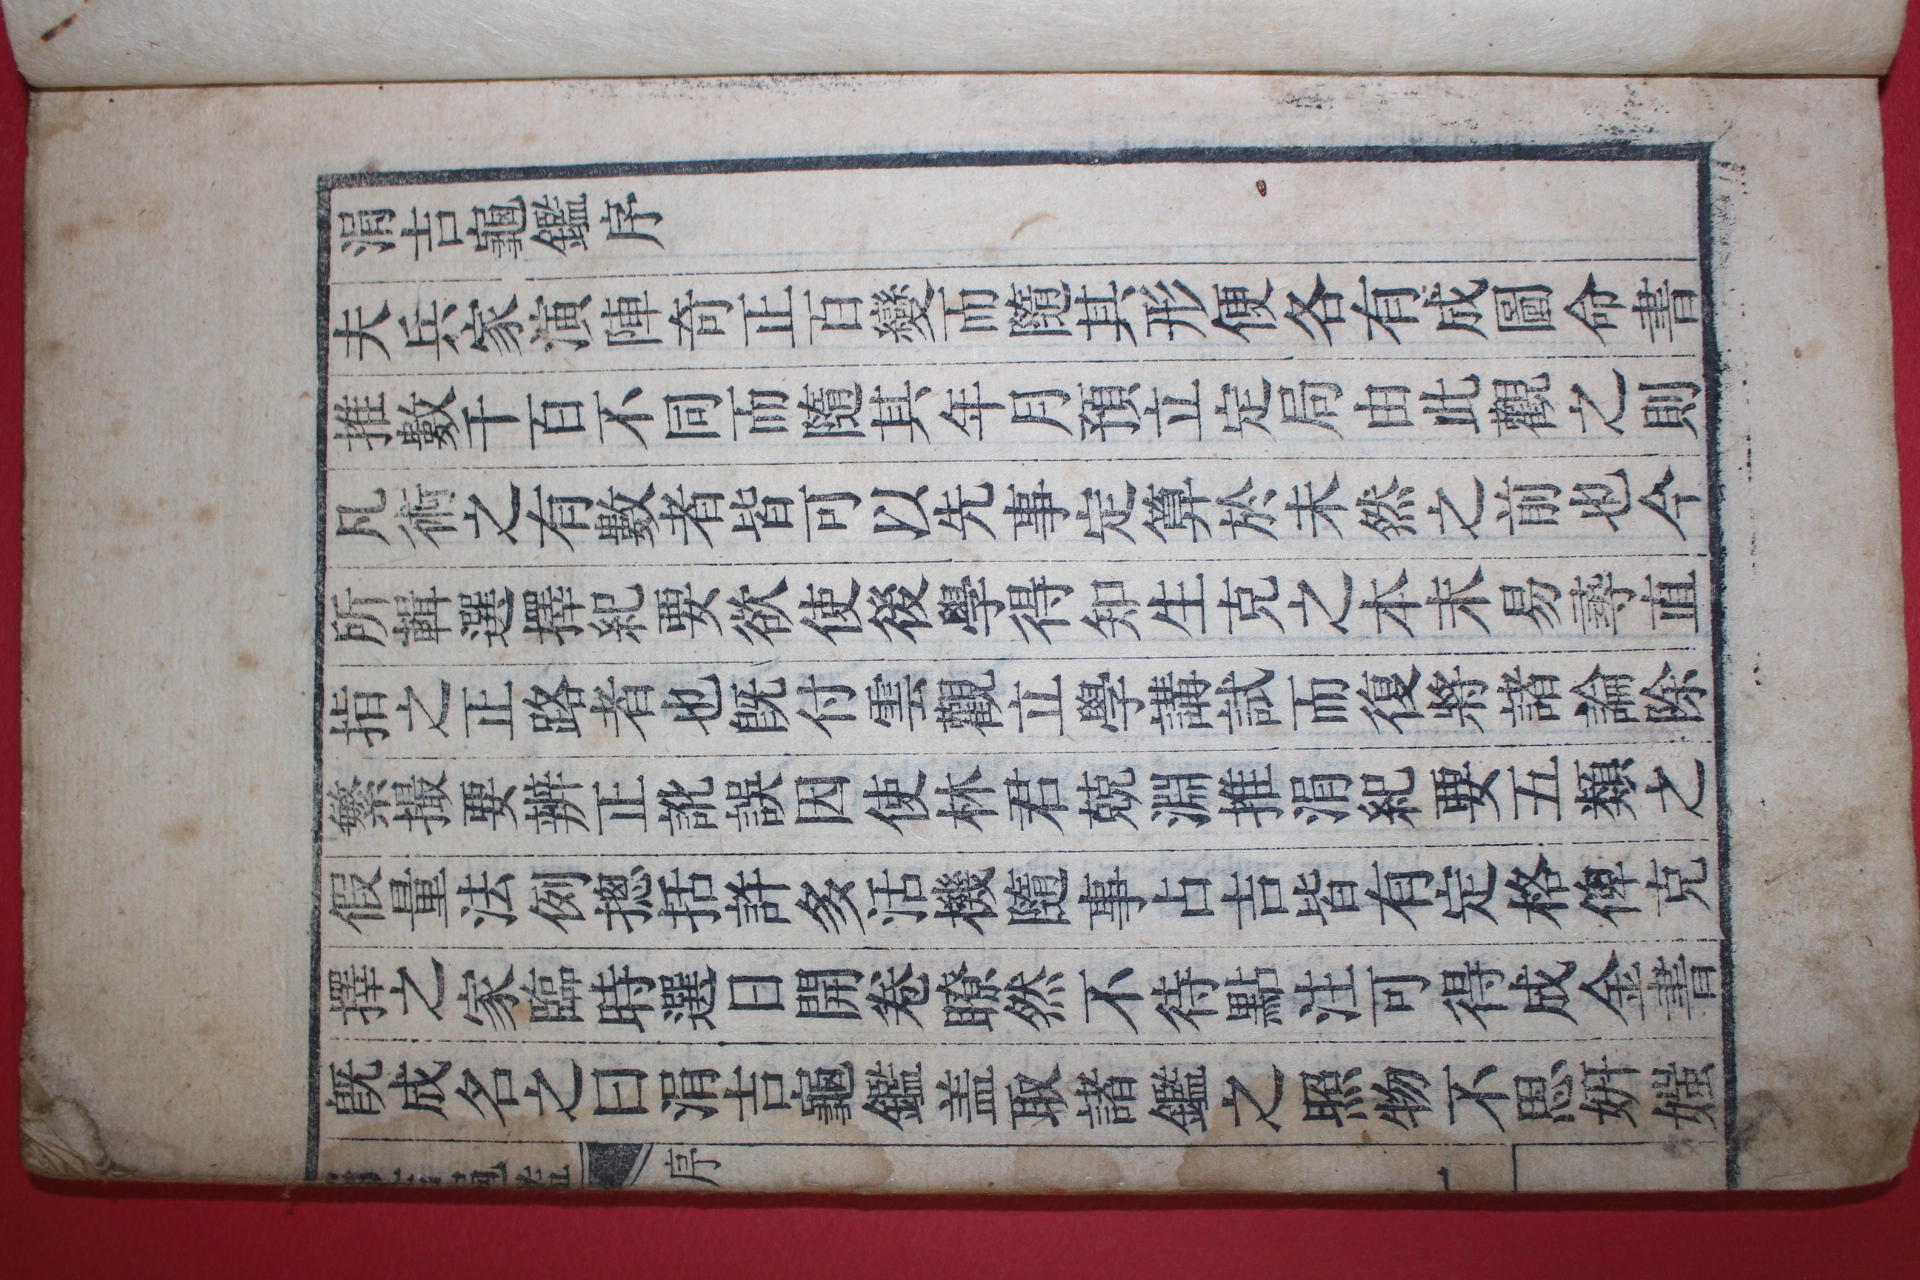 涓吉龜鑑序
夫兵家演陣奇正百變而隨其形便各有成圖命書
推數千百不同而隨其年月預立定局由此觀之則
凡術之有數者皆可以先事定算於未然之前也今
所輯選擇紀要欲使後學得知生克之本末易尋直
指之正路者也旣付雲觀立學講試而復將諸論除
繁撮要辨正訛誤因使林君兢淵推涓紀要五類之
假量法例摠括許多活機隨事占吉皆有定格俾克
擇之家臨時選日開卷瞭然不待點注可得成金書
旣成名之曰涓吉龜鑑盖取諸鑑之照物不思姸媸
涓吉龜鑑 序 一